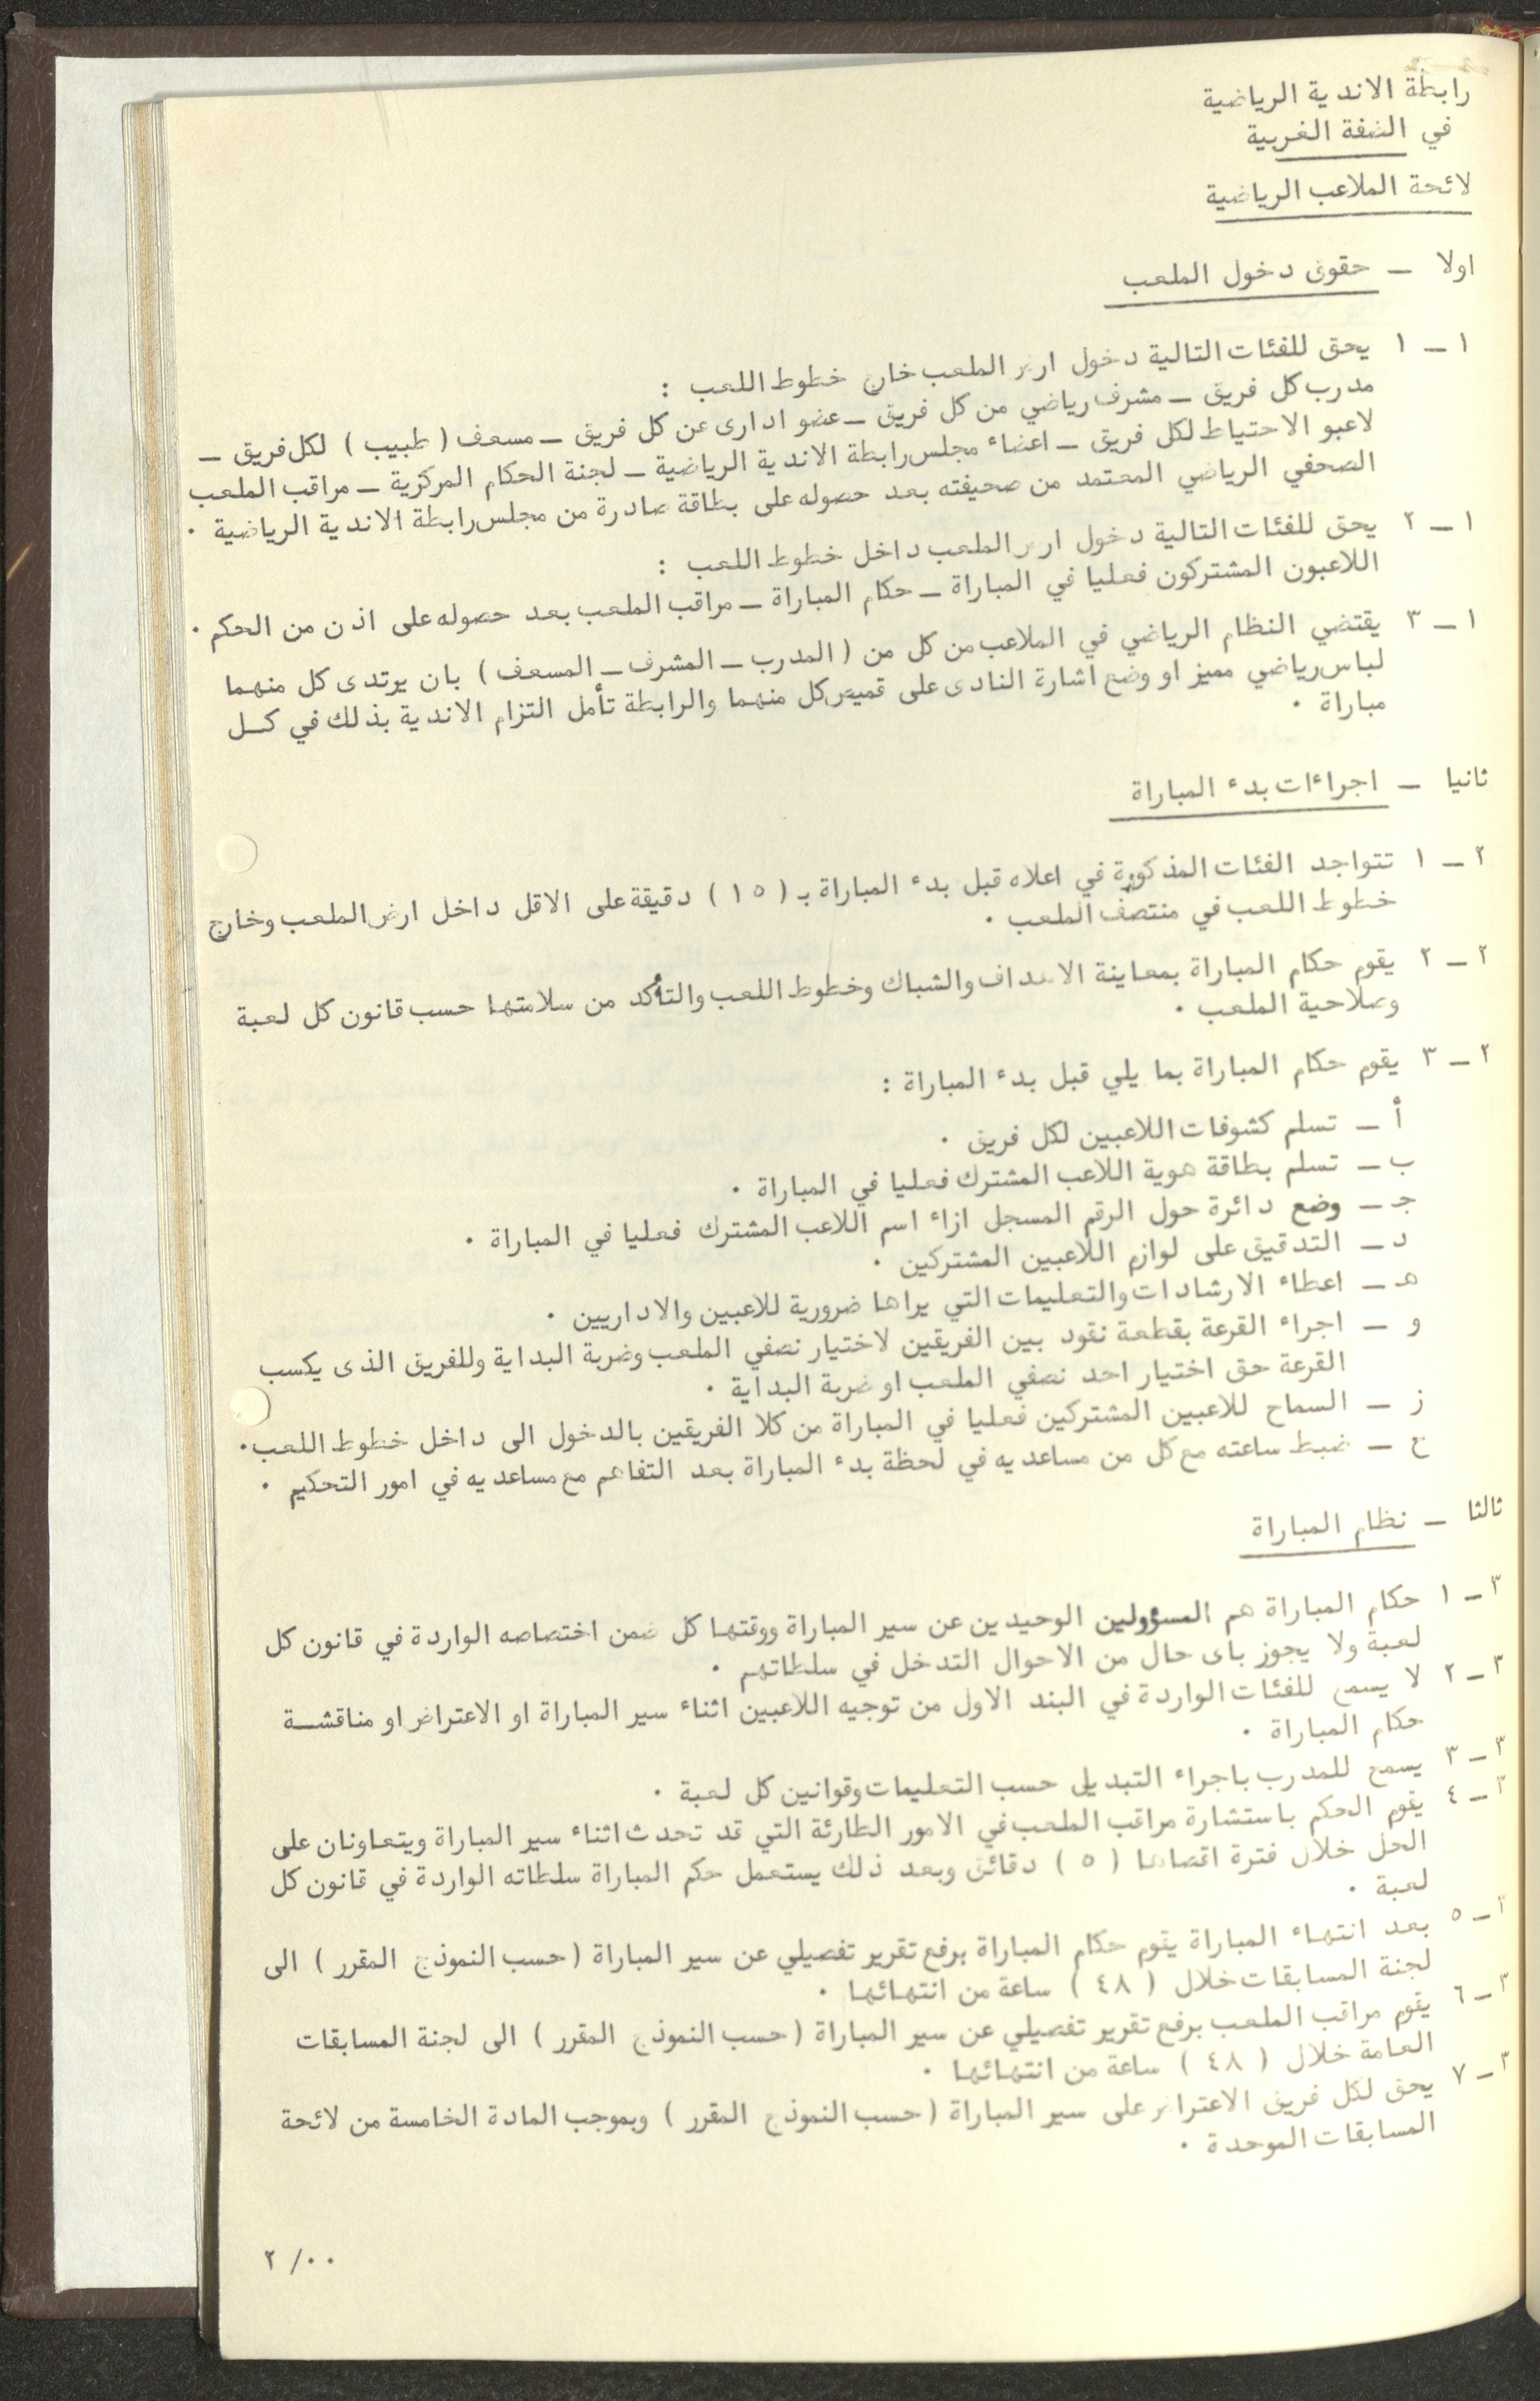 رابطة الاندية الرياضية
في الضفة الغربية
لائحة الملاعب الرياضية
اولا – حقوق دخول الملعب
١ – ١ يحق للفئات التالية دخول ارض الملعب خارج خطوط اللعب :
مدرب كل فريق – مشرف رياضي من كل فريق – عضو ادارى عن كل فريق – مسعف ( طبيب ) لكل فريق –
لاعبو الاحتياط لكل فريق – اعضاء مجلس رابطة الاندية الرياضية – لجنة الحكام المركزية – مراقب الملعب
الصحفي الرياضي المعتمد من صحيفته بعد حصوله على بطاقة صادرة من مجلس رابطة الاندية الرياضية .
١ – ٢ يحق للفئات التالية دخول ارض الملعب داخل خطوط اللعب :
اللاعبون المشتركون فعليا في المباراة – حكام المباراة – مراقب الملعب بعد حصوله على اذن من الحكم .
١ – ٣ يقتضي النظام الرياضي في الملاعب من كل من ( المدرب – المشرف – المسعف ) بان يرتدى كل منهما
لباس رياضي مميز او وضع اشارة النادى على قميص كل منهما والرابطة تأمل التزام الاندية بذلك في كل
مباراة .
ثانيا – اجراءات بدء المباراة
٢ – ١ تتواجد الفئات المذكورة في اعلاه قبل بدء المباراة بـ ( ١٥ ) دقيقة على الاقل داخل ارض الملعب وخارج
خطوط اللعب في منتصف الملعب .
٢ – ٢ يقوم حكام المباراة بمعاينة الاهداف والشباك وخطوط اللعب والتأكد من سلامتها حسب قانون كل لعبة
وصلاحية الملعب .
٢ – ٣ يقوم حكام المباراة بما يلي قبل بدء المباراة :
أ – تسلم كشوفات اللاعبين لكل فريق .
ب – تسلم بطاقة هوية اللاعب المشترك فعليا في المباراة .
جـ – وضع دائرة حول الرقم المسجل ازاء اسم اللاعب المشترك فعليا في المباراة .
د – التدقيق على لوازم اللاعبين المشتركين .
هـ – اعطاء الارشادات والتعليمات التي يراها ضرورية للاعبين والاداريين .
و – اجراء القرعة بقطعة نقود بين الفريقين لاختيار نصفي الملعب وضربة البداية وللفريق الذى يكسب
القرعة حق اختيار احد نصفي الملعب او ضربة البداية .
ز – السماح للاعبين المشتركين فعليا في المباراة من كلا الفريقين بالدخول الى داخل خطوط اللعب .
ح – ضبط ساعته مع كل من مساعديه في لحظة بدء المباراة بعد التفاهم مع مساعديه في امور التحكيم .
ثالثا – نظام المباراة
٣ – ١ حكام المباراة هم المسؤولين الوحيدين عن سير المباراة ووقتها كل ضمن اختصاصه الواردة في قانون كل
لعبة ولا يجوز باى حال من الاحوال التدخل في سلطاتهم .
٣ – ٢ لا يسمح للفئات الواردة في البند الاول من توجيه اللاعبين اثناء سير المباراة او الاعتراض او مناقشة
حكام المباراة .
٣ – ٣ يسمح للمدرب باجراء التبديل حسب التعليمات وقوانين كل لعبة .
٣ – ٤ يقوم الحكم باستشارة مراقب الملعب في الامور الطارئة التي قد تحدث اثناء سير المباراة ويتعاونان على
الحل خلال فترة اقصاها ( ٥ ) دقائق وبعد ذلك يستعمل حكم المباراة سلطاته الواردة في قانون كل
لعبة .
٣ – ٥ بعد انتهاء المباراة يقوم حكام المباراة برفع تقرير تفصيلي عن سير المباراة ( حسب النموذج المقرر ) الى
لجنة المسابقات خلال ( ٤٨ ) ساعة من انتهائها .
٣ – ٦ يقوم مراقب الملعب برفع تقرير تفصيلي عن سير المباراة ( حسب النموذج المقرر ) الى لجنة المسابقات
العامة خلال ( ٤٨ ) ساعة من انتهائها .
٣ – ٧ يحق لكل فريق الاعتراض على سير المباراة ( حسب النموذج المقرر ) وبموجب المادة الخامسة من لائحة
المسابقات الموحدة .
٢ / ٠٠